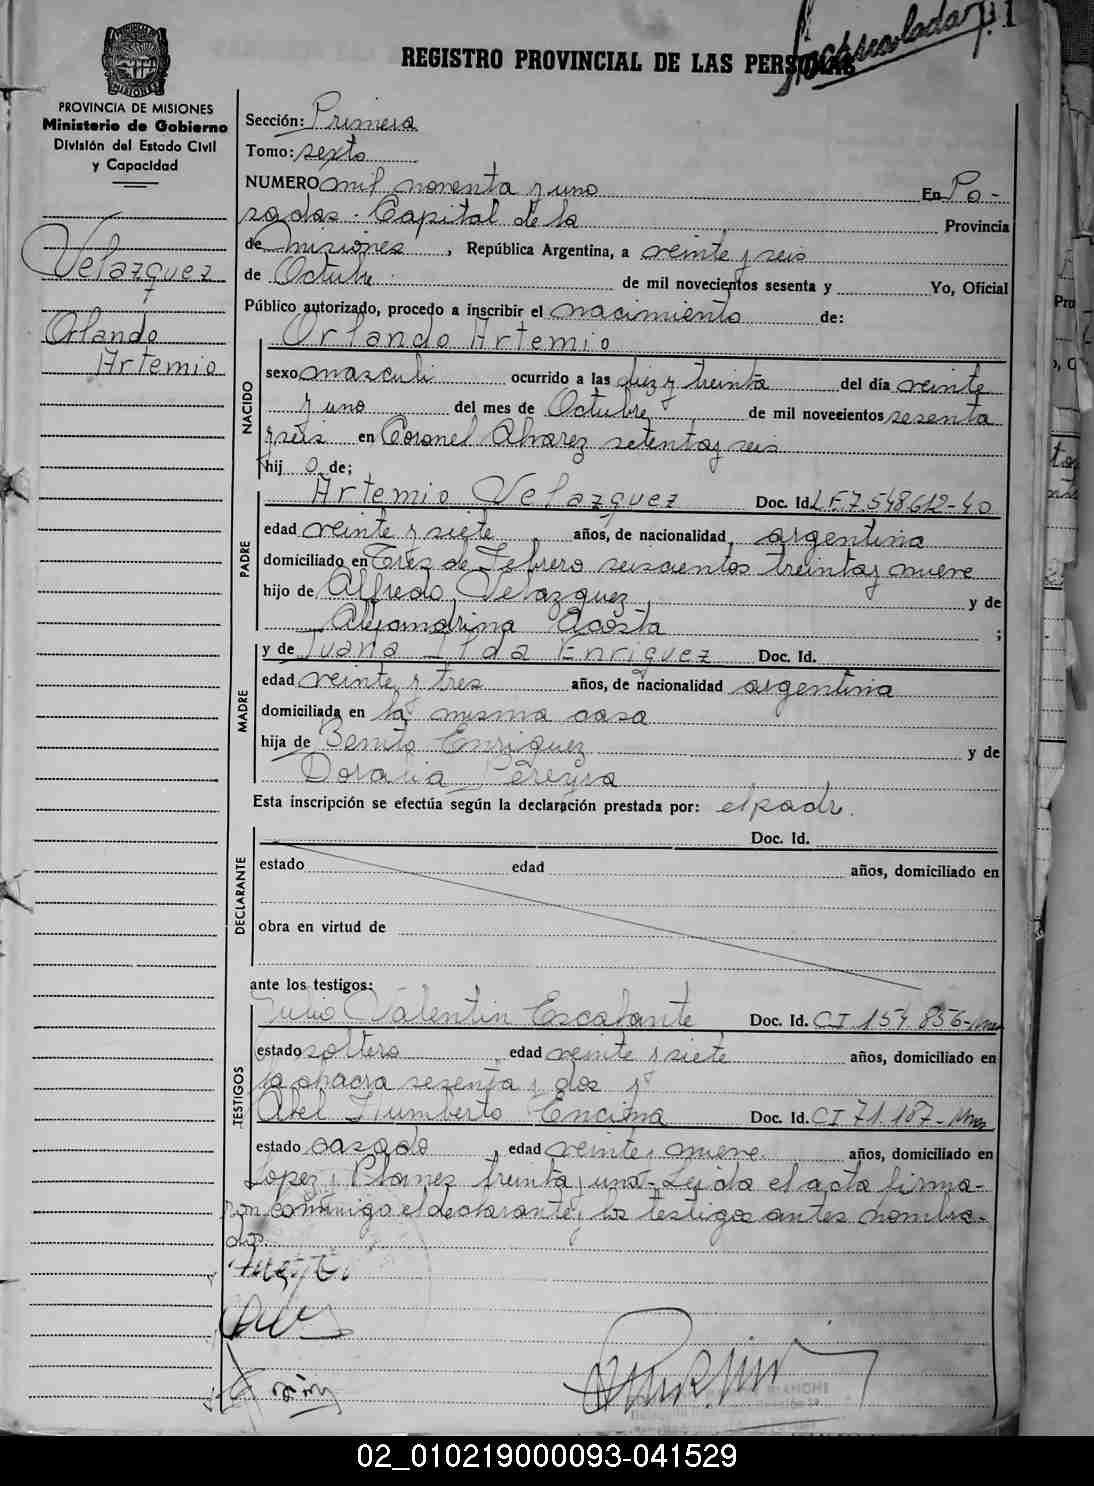 REGISTRO PROVINCIAL DE LAS PERSONAS
PROVINCIA DE MISIONES
Ministerio de Gobierno
División del Estado Civil
y Capacidad
Velazquez
Orlando
Artemio
Sección: Primera
Tomo: sexto
NUMERO mil noventa y uno En Po-
sadas. Capital de la Provincia
de Misiones, República Argentina, a veinte y seis
de Octubre de mil novecientos sesenta y Yo, Oficial
Público autorizado, procedo a inscribir el nacimiento de:
Orlando Artemio
NACIDO
sexo masculi ocurrido a las diez y treinta del día veinte
y uno del mes de Octubre de mil novecientos sesenta
y seis en Coronel Alvarez setenta y seis
hijo de;
PADRE
Artemio Velazquez Doc. Id. LE.7.548.612-40
edad veinte y siete años, de nacionalidad argentina
domiciliado en Tres de Febrero seiscientos treinta y nueve
hijo de Alfredo Velazquez y de
Alejandrina Acosta ;
MADRE
y de Juana Ilda Enriquez Doc. Id.
edad veinte y tres años, de nacionalidad argentina
domiciliada en la misma casa
hija de Benito Enriquez y de
Doralia Pereyra
Esta inscripción se efectúa según la declaración prestada por: el padr.
DECLARANTE
Doc. Id.
estado edad años, domiciliado en
obra en virtud de
ante los testigos:
TESTIGOS
Julio Valentin Escalante Doc. Id. CI 154.856-Mnes
estado soltero edad veinte y siete años, domiciliado en
la chacra sesenta y dos y
Abel Humberto Encina Doc. Id. CI 71.187-Mnes
estado casado, edad veinte y nueve años, domiciliado en
Lopez y Planes treinta y uno-Leida el acta firma-
ron conmigo el declarante y los testigos antes nombra-
dos.
02_010219000093-041529